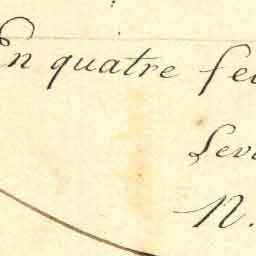 En quatre feu
Levé
N.